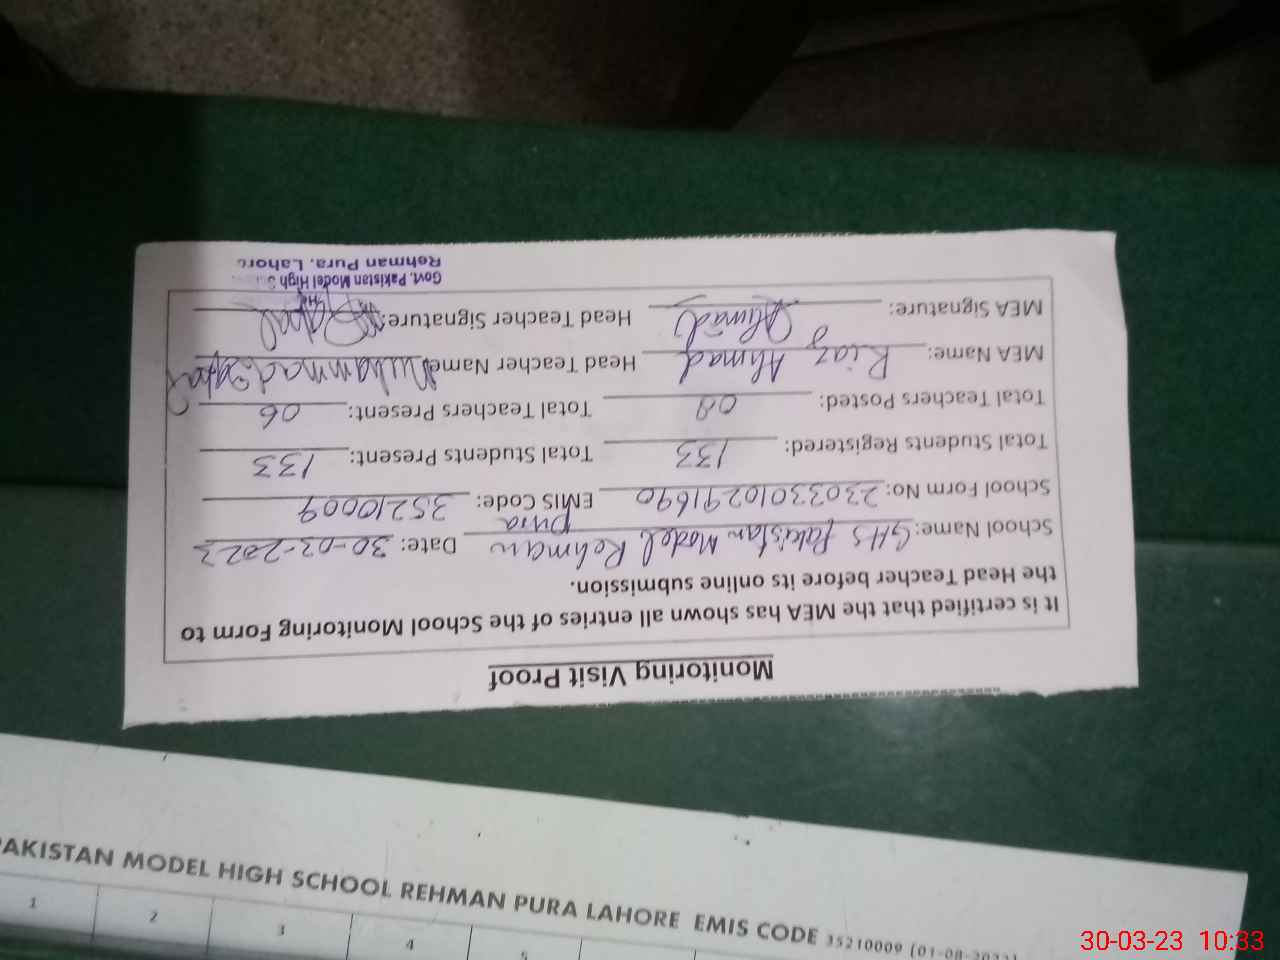 Monitoring Visit Proof
It is certified that the MEA has shown all entries of the School Monitoring Form to
the Head Teacher before its online submission.
School Name: GHS Pakistan Model Rehman Pura Date: 30-03-2023
School Form No: 23033010291690 EMIS Code: 35210009
Total Students Registered: 133 Total Students Present: 133
Total Teachers Posted: Total Teachers Present: 06
MEA Name: Riaz Ahmad Head Teacher Name: Muhammad
MEA Signature: Ahmad Head Teacher Signature:
Govt. Pakistan Model High
Rehman Pura, Lahore
PAKISTAN MODEL HIGH SCHOOL REHMAN PURA LAHORE EMIS CODE 35210009 (01-08-2022)
1 2 3 4 5
30-03-23 10:33